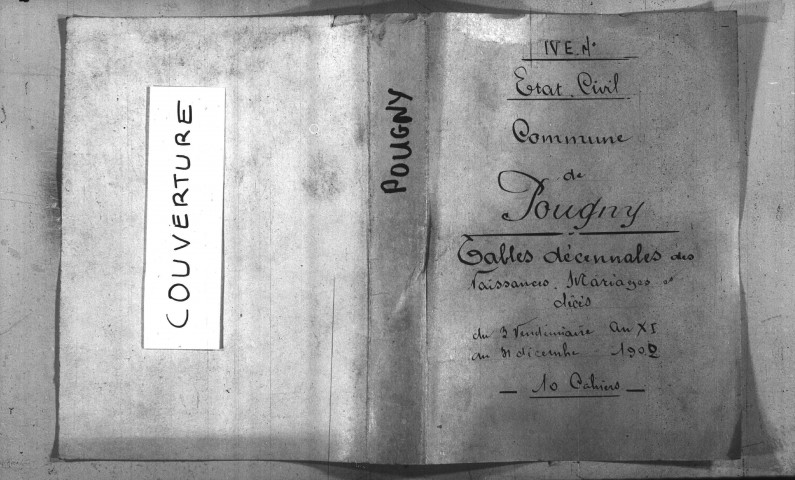 COUVERTURE
POUGNY
IV E. N°
Etat Civil
Commune
de
Pougny
Tables décennales des
Naissances. Mariages et
décès
du 3 Vendémiaire An XI
au 31 décembre 1902
— 10 Cahiers —